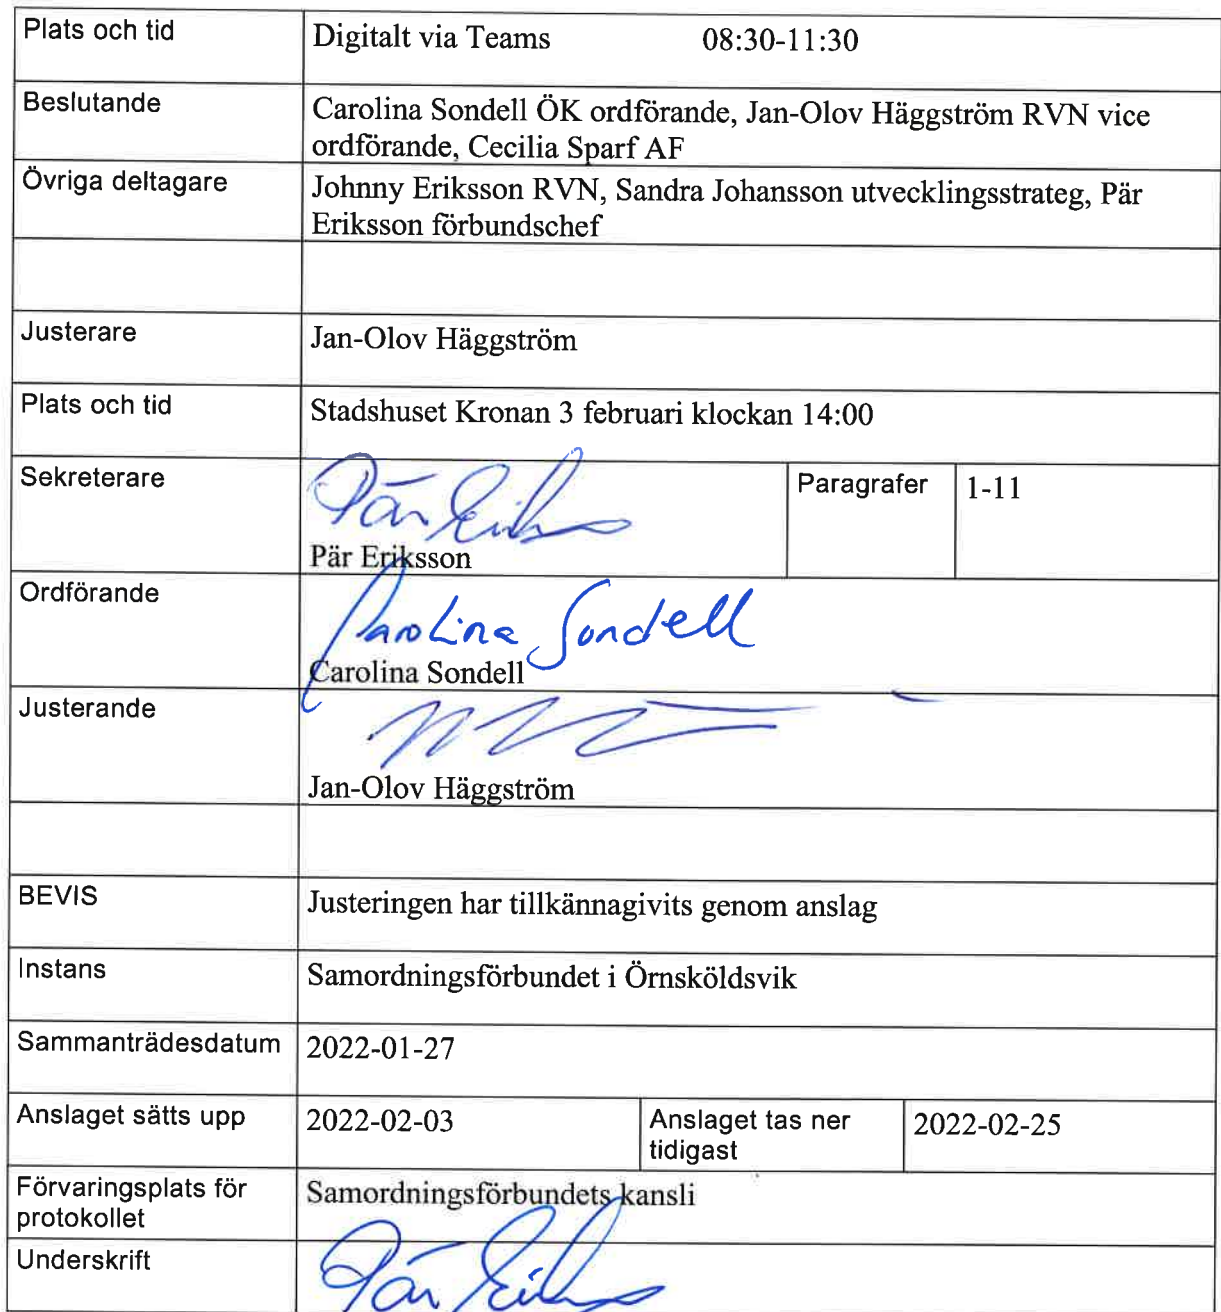 Plats och tid Digitalt via Teams 08:30-11:30
Beslutande Carolina Sondell ÖK ordförande, Jan-Olov Häggström RVN vice
ordförande, Cecilia Sparf AF
Övriga deltagare Johnny Eriksson RVN, Sandra Johansson utvecklingsstrateg, Pär
Eriksson förbundschef
Justerare Jan-Olov Häggström
Plats och tid Stadshuset Kronan 3 februari klockan 14:00
Sekreterare Paragrafer 1-11
Pär Eriksson
Ordförande
Carolina Sondell
Carolina Sondell
Justerande
Jan-Olov Häggström
BEVIS Justeringen har tillkännagivits genom anslag
Instans Samordningsförbundet i Örnsköldsvik
Sammanträdesdatum 2022-01-27
Anslaget sätts upp 2022-02-03 Anslaget tas ner
tidigast 2022-02-25
Förvaringsplats för
protokollet Samordningsförbundets kansli
Underskrift